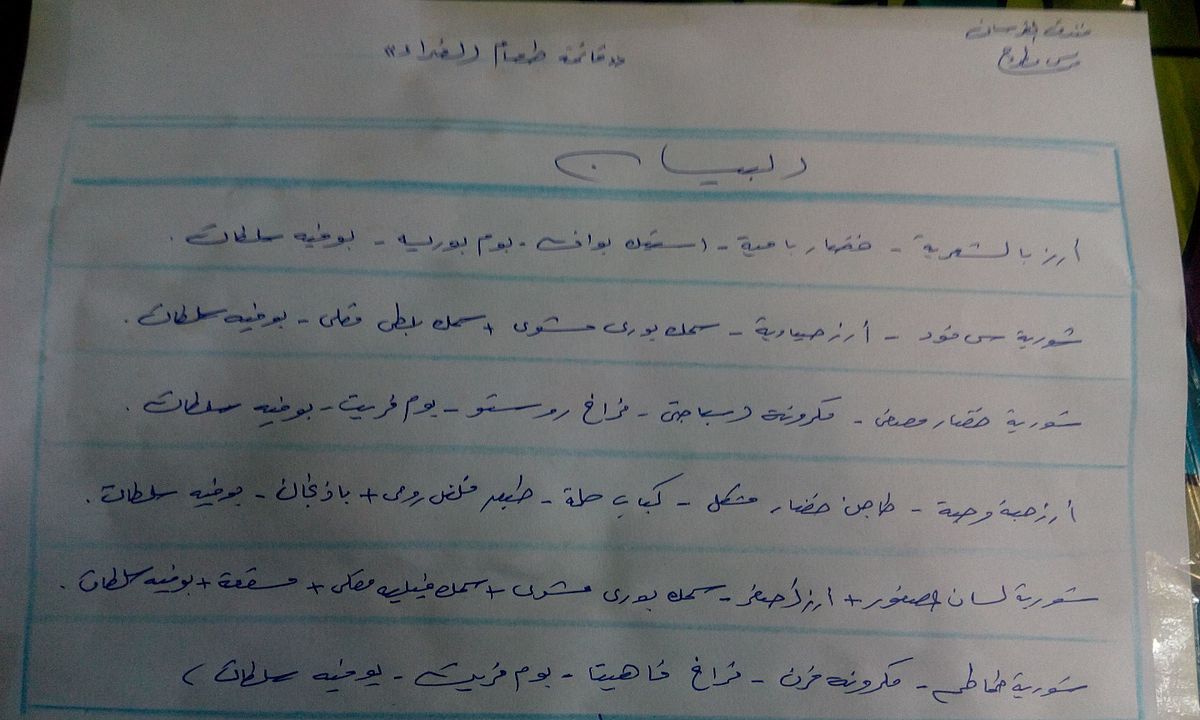 فندق الفرسان
مرسى مطروح
«قائمة طعام الغداء»
البيــــان
أرز بالشعرية - خضار بامية - استيك بواف - بوم بوريه - بوفيه سلطات.
شوربة سى فود - أرز صيادية - سمك بورى مشوى + سمك بلطى مقلى - بوفيه سلطات.
شوربة خضار مصفى - مكرونة اسباجتى - فراخ روستو - بوم فريت - بوفيه سلطات.
أرز حبة وحبة - طاجن خضار مشكل - كباب حلة - فلفل رومى + باذنجان - بوفيه سلطات.
شوربة لسان عصفور + أرز أصفر - سمك بورى مشوى + سمك فيليه مقلى + مسقعة + بوفيه سلطات.
شوربة طماطم - مكرونه فرن - فراخ فاهيتا - بوم فريت - بوفيه سلطات